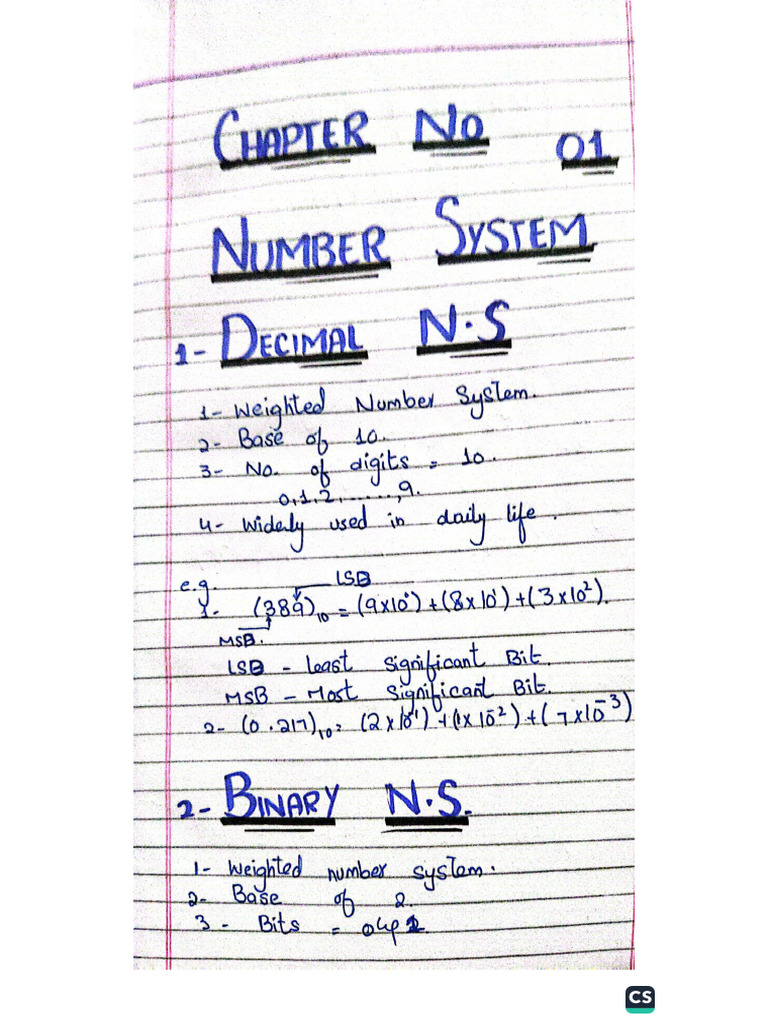 CHAPTER No 01
NUMBER SYSTEM
1- DECIMAL N.S
1- Weighted Number System.
2- Base of 10.
3- No. of digits = 10.
0,1,2,......,9.
4- Widely used in daily life.
e.g. LSB
1. (389)₁₀ = (9x10⁰)+(8x10¹)+(3x10²).
MSB.
LSB - Least Significant Bit.
MSB - Most Significant Bit.
2- (0.217)₁₀= (2x10⁻¹)+(1x10⁻²)+(7x10⁻³)
2- BINARY N.S.
1- Weighted number system.
2- Base of 2.
3- Bits =
CS